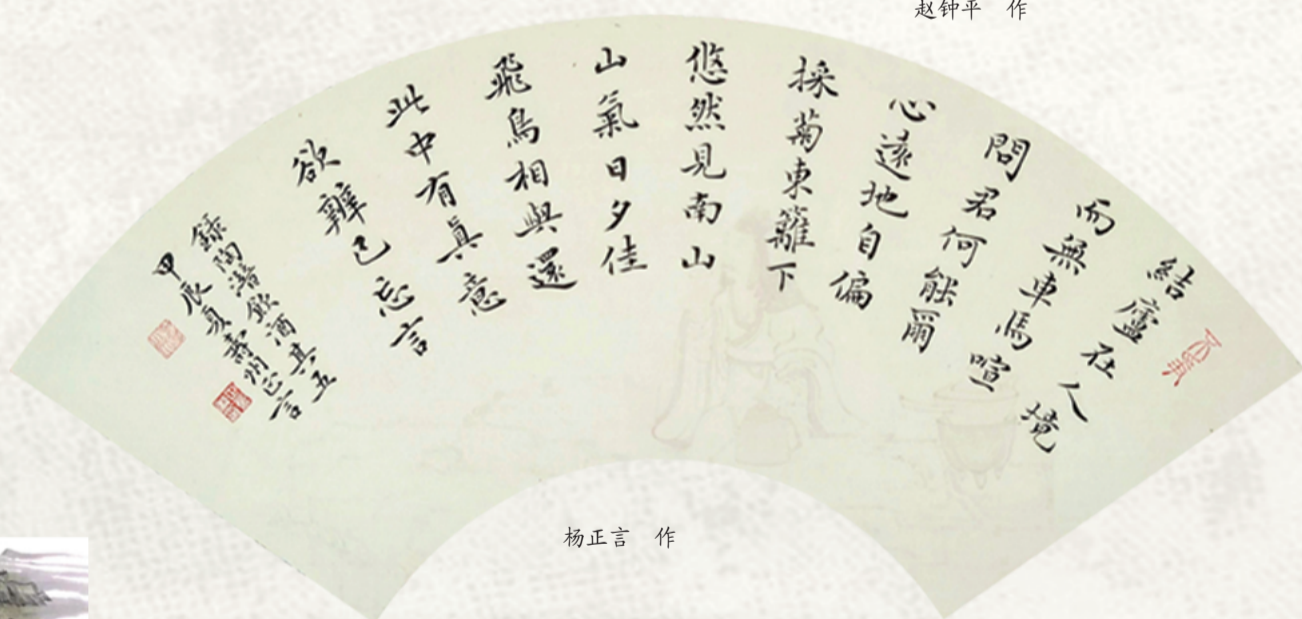 赵钟平 作
結廬在人境
而無車馬喧
問君何能爾
心遠地自偏
採菊東籬下
悠然見南山
山氣日夕佳
飛鳥相與還
此中有真意
欲辨已忘言
錄陶潛飲酒其五
甲辰夏壽州正言
杨正言 作